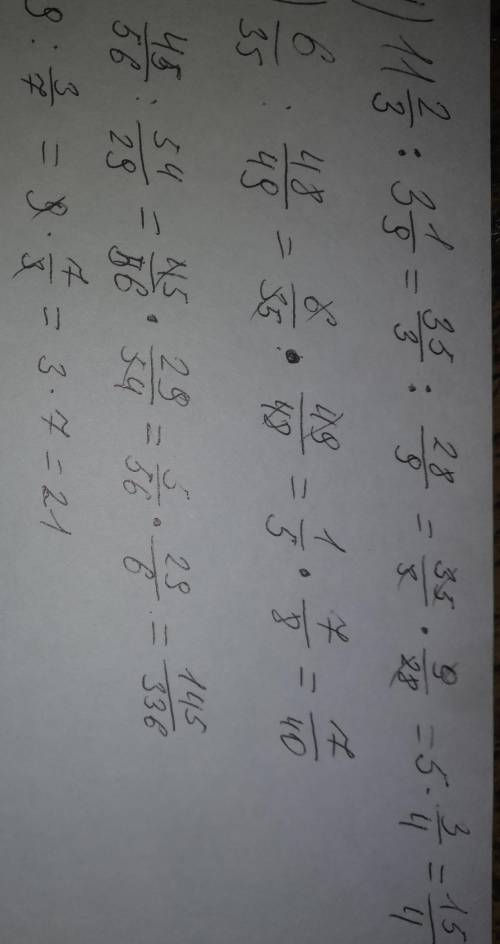 ) 11 2/3 : 3 1/9 = 35/3 : 28/9 = 35/3 · 9/28 = 5 · 3/4 = 15/4
) 6/35 : 48/49 = 6/35 · 49/48 = 1/5 · 7/8 = 7/40
45/56 : 54/29 = 45/56 · 29/54 = 5/56 · 29/6 = 145/336
9 : 3/7 = 9 · 7/3 = 3 · 7 = 21